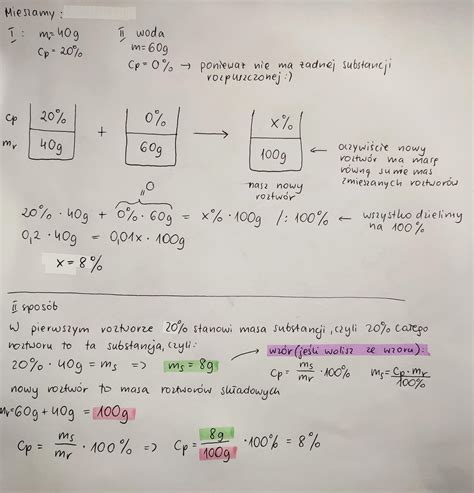 Mieszamy:
I: m = 40g II woda
Cp = 20% m = 60g
Cp = 0% → ponieważ nie ma żadnej substancji rozpuszczonej :)
Cp 20% 0% x%
mr 40g + 60g → 100g ← oczywiście nowy roztwór ma masę równą sumie mas zmieszanych roztworów
nasz nowy roztwór
0
20% · 40g + 0% · 60g = x% · 100g /: 100% ← wszystko dzielimy na 100%
0,2 · 40g = 0,01x · 100g
x = 8%
II sposób
W pierwszym roztworze 20% stanowi masa substancji, czyli 20% całego
roztworu to ta substancja, czyli:
20% · 40g = ms => ms = 8g
wzór (jeśli wolisz ze wzoru):
Cp = ms/mr · 100% ms = Cp · mr/100%
nowy roztwór to masa roztworów składowych
mr = 60g + 40g = 100g
Cp = ms/mr · 100% => Cp = 8g/100g · 100% = 8%